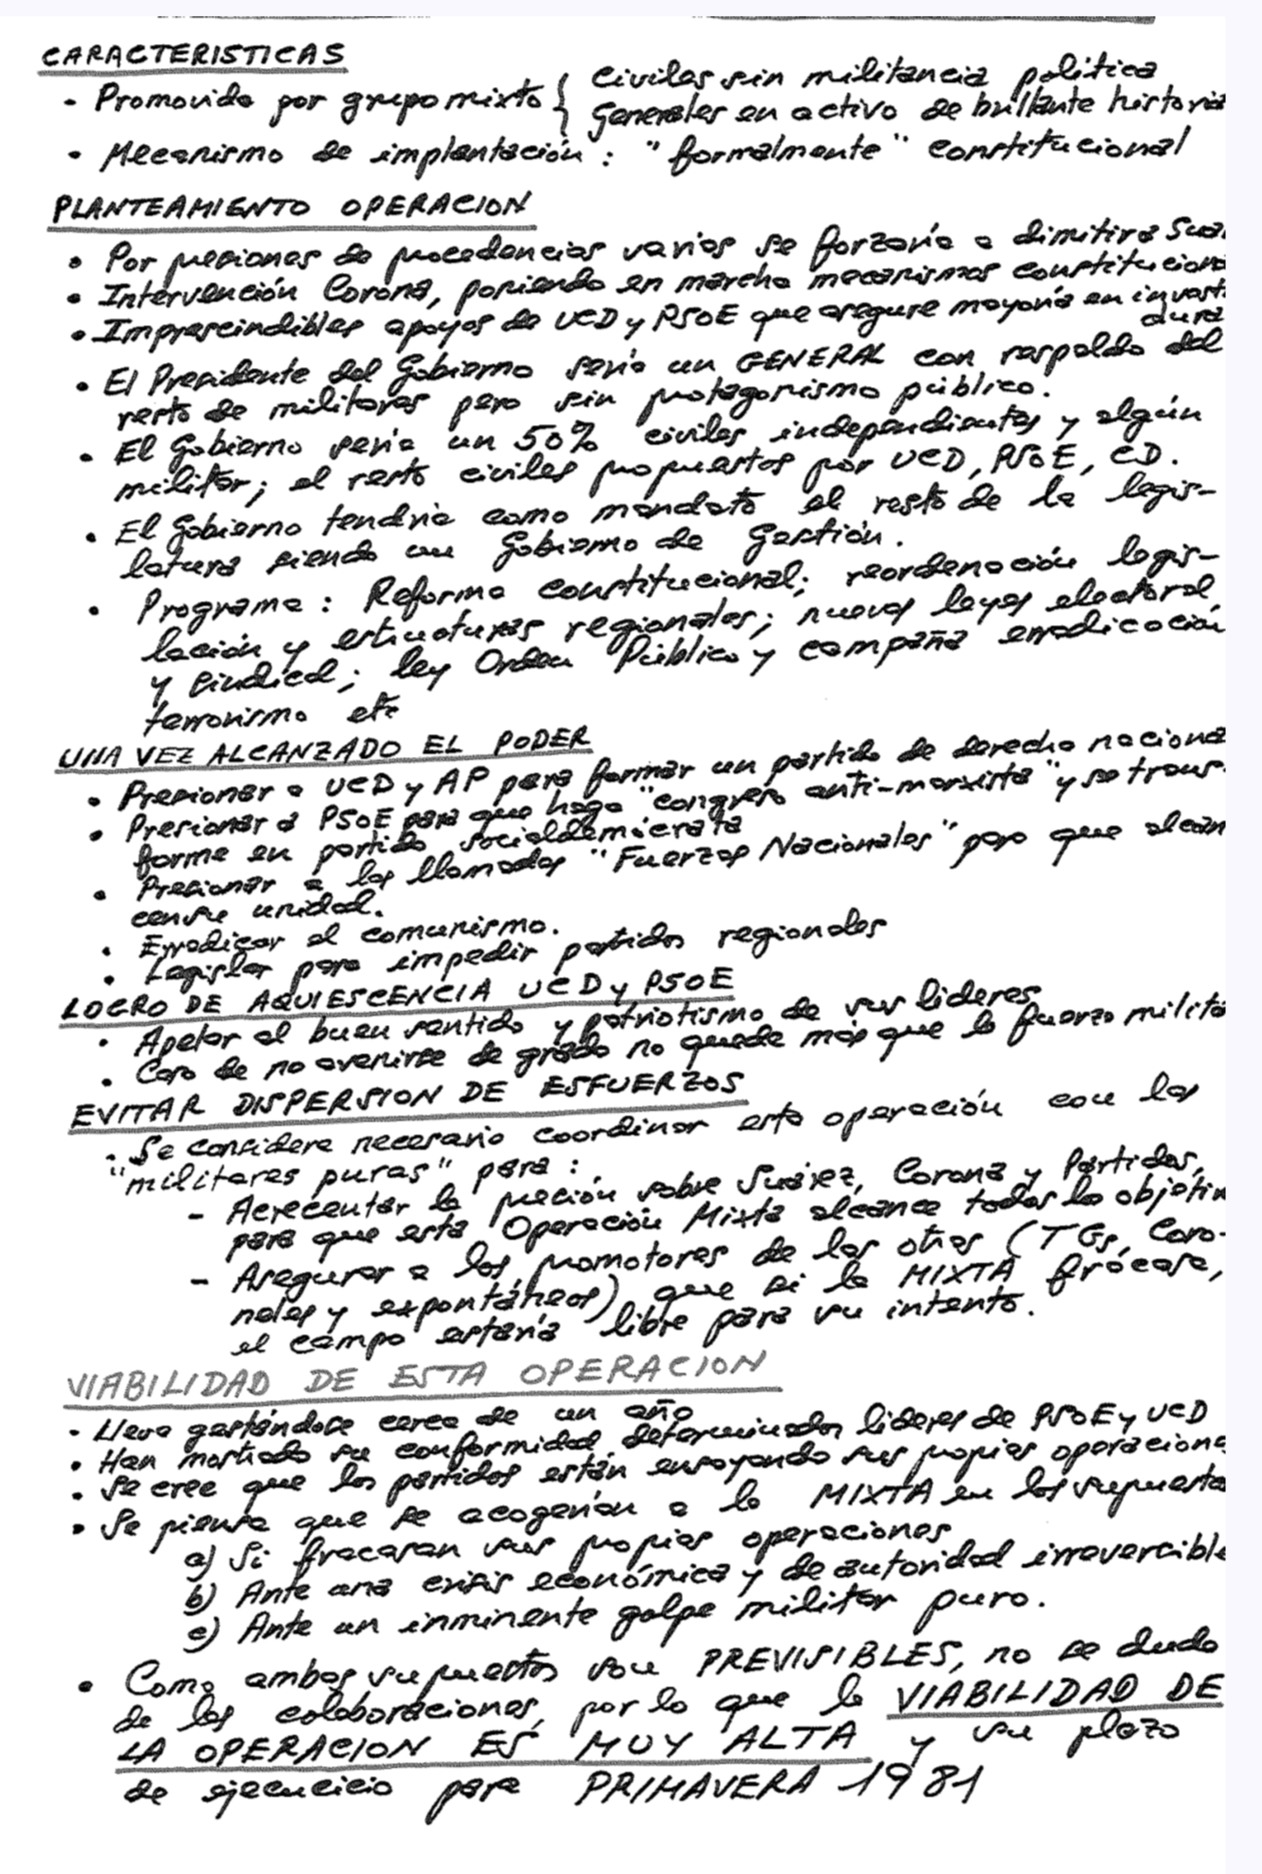 CARACTERISTICAS
- Promovida por grupo mixto { Civiles sin militancia política
Generales en activo de brillante historia
- Mecanismo de implantación: "formalmente" constitucional
PLANTEAMIENTO OPERACION
• Por presiones de procedencias varias se forzaría a dimitir a Suar
• Intervención Corona, poniendo en marcha mecanismos constituciona
• Imprescindibles apoyos de UCD y PSOE que asegure mayoría en investi
dura
• El Presidente del Gobierno sería un GENERAL con respaldo del
resto de militares pero sin protagonismo público.
• El Gobierno sería un 50% civiles independientes y algún
militar; el resto civiles propuestos por UCD, PSOE, CD.
• El Gobierno tendría como mandato el resto de la legis-
latura siendo un Gobierno de Gestión.
• Programa: Reforma constitucional; reordenación legis-
lación y estructuras regionales; nuevas leyes electoral
y sindical; ley Orden Público y campaña erradicación
terrorismo etc
UNA VEZ ALCANZADO EL PODER
• Presionar a UCD y AP para formar un partido de derecha naciona
• Presionar a PSOE para que haga "congreso anti-marxista" y se trans-
forme en partido socialdemócrata
• Presionar a las llamadas "Fuerzas Nacionales" para que alcan
cen su unidad.
• Erradicar el comunismo.
• Legislar para impedir partidos regionales
LOGRO DE AQUIESCENCIA UCD y PSOE
• Apelar al buen sentido y patriotismo de sus líderes
• Caso de no avenirse de grado no queda más que la fuerza milita
EVITAR DISPERSION DE ESFUERZOS
• Se considera necesario coordinar esta operación con las
"militares puras" para:
- Acrecentar la presión sobre Suárez, Corona y Partidos,
para que esta Operación Mixta alcance todos lo objetiv
- Asegurar a los promotores de las otras (TGs, Coro-
neles y espontáneos) que si la MIXTA frácasa,
el campo estaría libre para su intento.
VIABILIDAD DE ESTA OPERACION
• Lleva gestándose cerca de un año
• Han mostrado su conformidad determinados líderes de PSOE y UCD
• Se cree que los partidos están ensayando sus propias operacione
• Se piensa que se acogerían a la MIXTA en los supuesto
a) Si fracasan sus propias operaciones
b) Ante una crisis económica y de autoridad irreversible
c) Ante un inminente golpe militar puro.
• Como ambos supuestos son PREVISIBLES, no se duda
de las colaboraciones, por lo que la VIABILIDAD DE
LA OPERACION ES MUY ALTA y su plazo
de ejecucicio para PRIMAVERA 1981